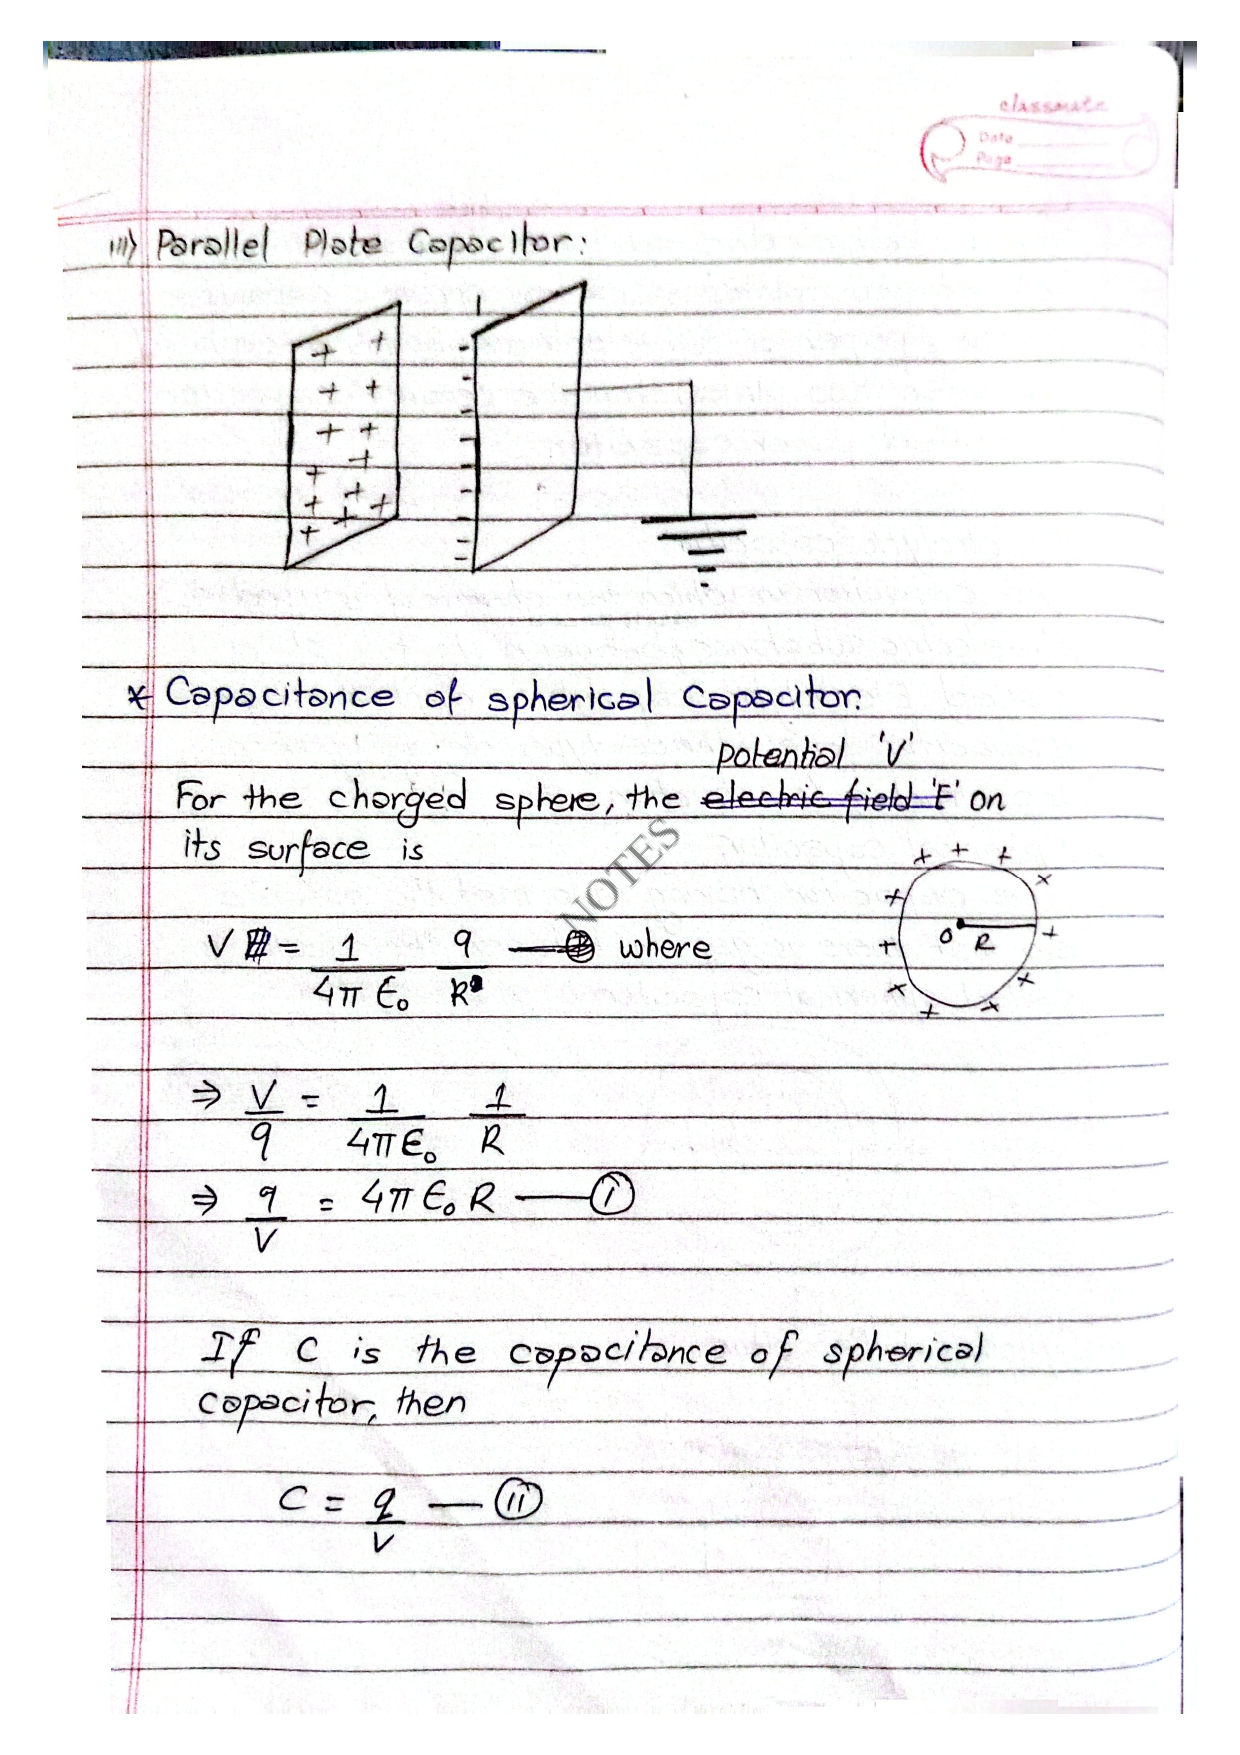 classmate
Date
Page
iii) Parallel Plate Capacitor:
+ +
+ +
+ +
+ +
+ + +
+ +
* Capacitance of spherical Capacitor.
potential 'V'
For the charged sphere, the electric field 'E' on
its surface is
NOTES
V = 1/4πϵ₀ q/R — where
O R
⇒ V/q = 1/4πϵ₀ 1/R
⇒ q/V = 4πϵ₀ R — (i)
If C is the capacitance of spherical
capacitor, then
C = q/V — (ii)